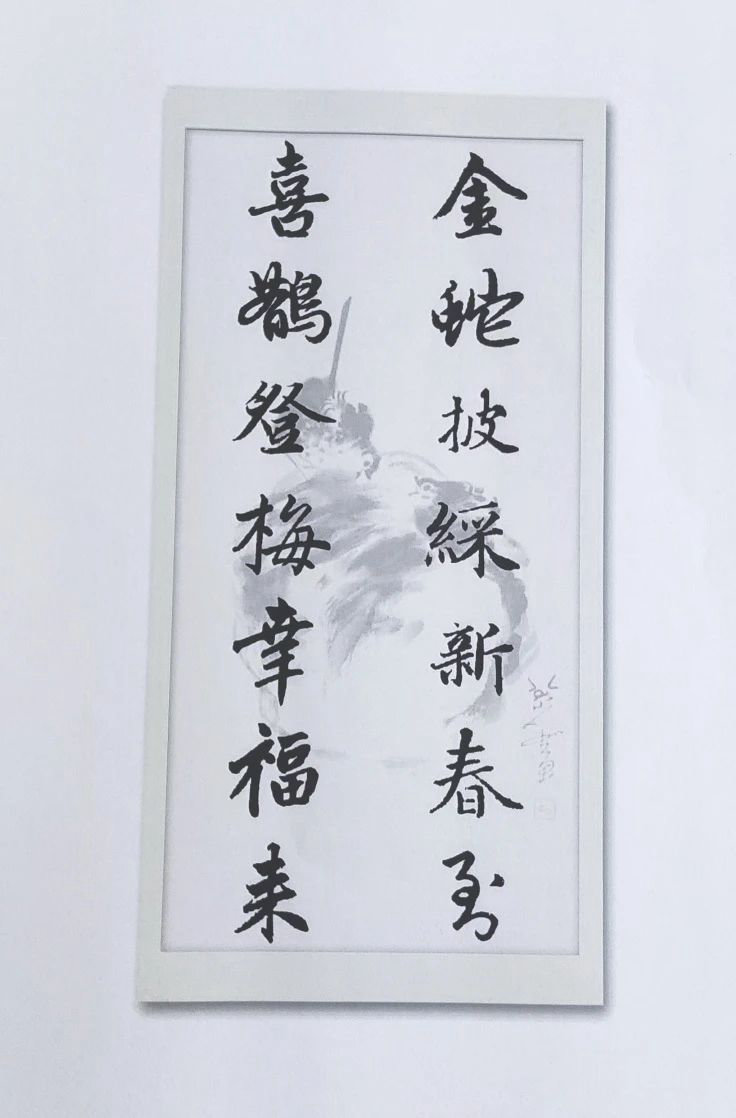 金蛇披綵新春到
喜鵲登梅幸福来